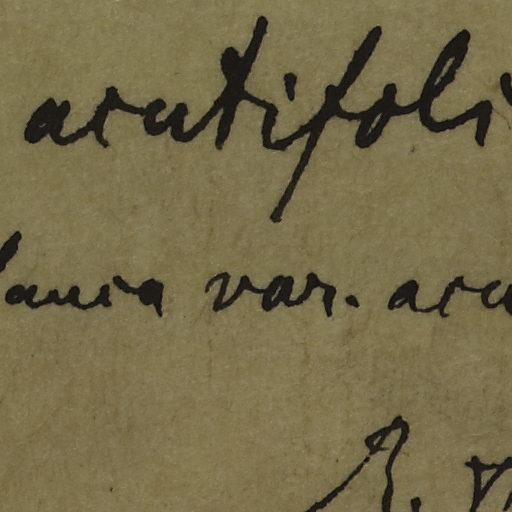 acutifoli
lauca var. acu